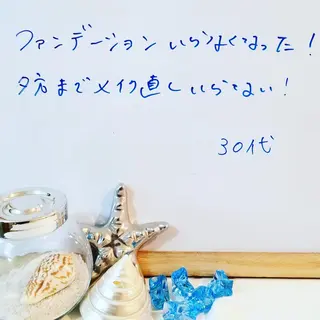 ファンデーションいらなくなった!
夕方までメイク直しいらない!
30代